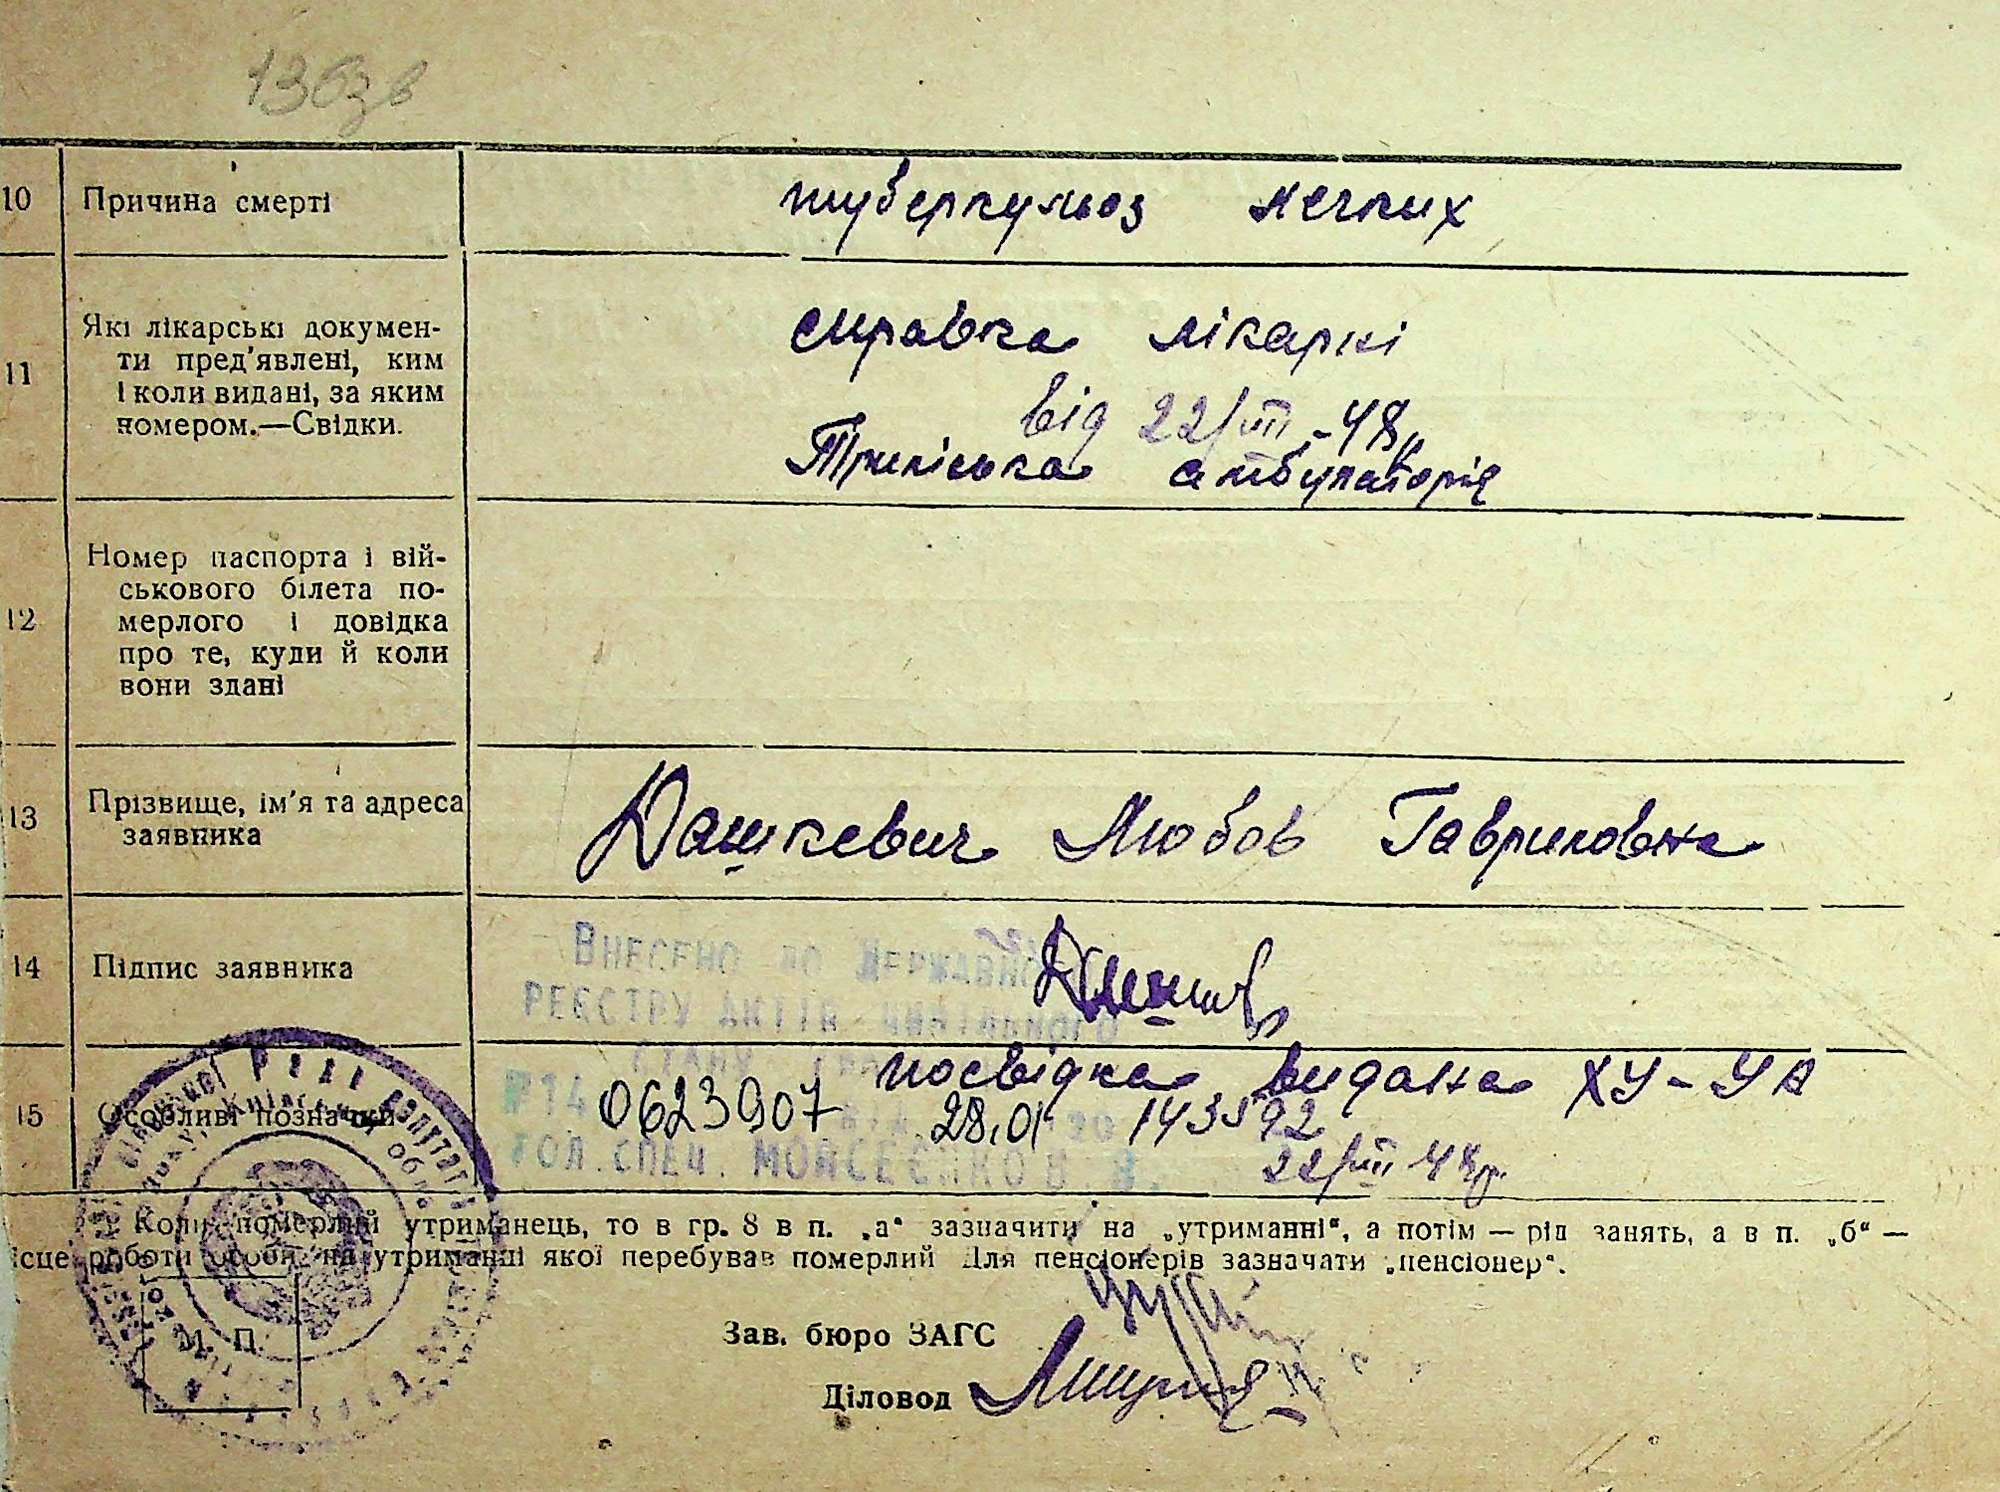 136зв
10 Причина смерті туберкульоз легких
11 Які лікарські докумен-
ти пред'явлені, ким
і коли видані, за яким
номером.—Свідки.
справка лікарні
від 22/VII -48
амбулаторія
12 Номер паспорта і вій-
ськового білета по-
мерлого і довідка
про те, куди й коли
вони здані
13 Прізвище, ім'я та адреса
заявника
Дашкевич Любов Гавриловна
14 Підпис заявника
Внесено до Державного
реєстру актів цивільного
стану
15 Особливі позначки
посвідка видана ХУ-УА
0623907 28.01 143592
22/VII 48р.
гол. спец. Мойсеєнко В. В.
Коли померлий утриманець, то в гр. 8 в п. „а“ зазначити на „утриманні“, а потім — рід занять, а в п. „б“ —
ісце роботи особи, на утриманні якої перебував померлий Для пенсіонерів зазначати „пенсіонер“.
М. П.
Зав. бюро ЗАГС
Діловод